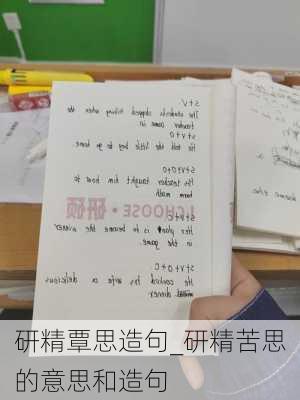 S+V
The students stopped talking when the
teacher came in
S+V+O
He told the little boy to go home
S+V+O+O
His teacher taught him how to
learn math
CHOOSE·研硕
Her plan is to become the winner
in the game.
S+V+O+C
He cooked his wife a delicious
dinner
研精覃思造句_研精苦思
的意思和造句